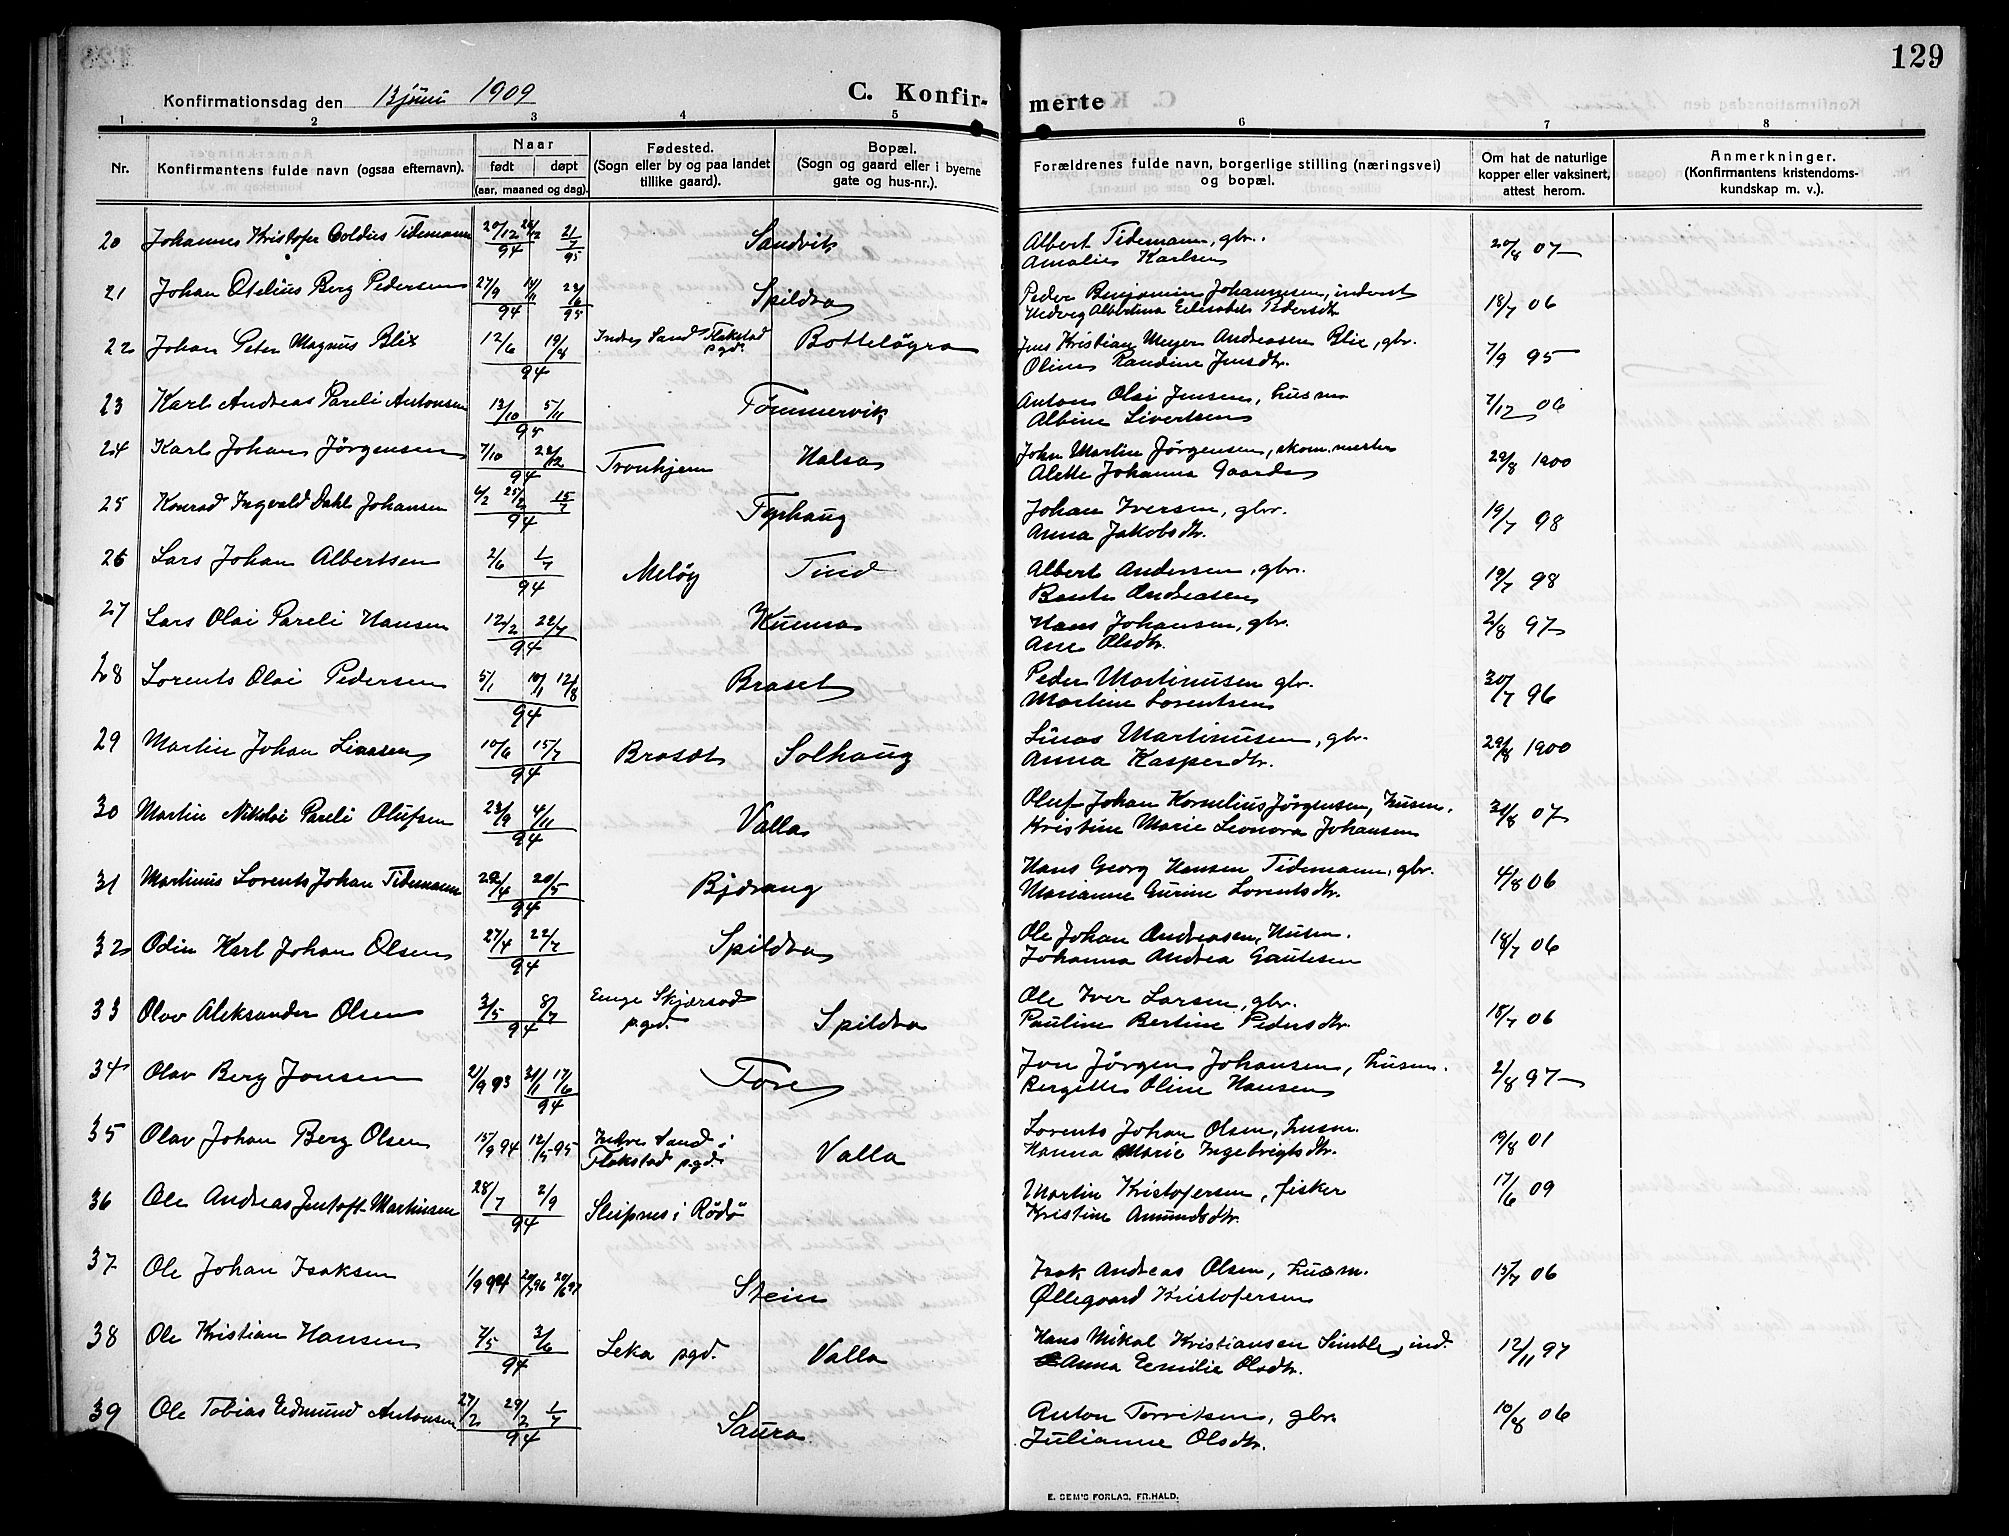 129
Konfirmationsdag den 13 juni 1909
C. Konfirmerte
1 2 3 4 5 6 7 8
Nr. Konfirmantens fulde navn (ogsaa efternavn). Naar født døpt (aar, maaned og dag). Fødested. (Sogn eller by og paa landet tillike gaard). Bopæl. (Sogn og gaard eller i byerne gate og hus-nr.). Forældrenes fulde navn, borgerlige stilling (næringsvei) og bopæl. Om hat de naturlige kopper eller vaksinert, attest herom. Anmerkninger. (Konfirmantens kristendoms-kundskap m. v.).
20 Johannes Kristofer Coldius Tidemann 20/12 26/12 94 21/7 95 Sandvik Albert Tidemann, gbr. 20/8 07
Amalie Karlsen
21 Johan Otelius Berg Pedersen 27/9 94 23/6 95 Spildra Peder Benjamin Johannesen, inderst 18/7 06
Hedvig Albertina Elisabet Pedersdtr
22 Johan Peter Magnus Blix 12/6 19/8 94 Indre Sand Flakstad pgd. Botteløyra Jens Kristian Meyer Andreasen Blix, gbr. 7/9 95
Oline Randine Jensdtr.
23 Karl Andreas Pareli Antonsen 13/10 5/11 94 Tømmervik Anton Olai Jensen, husm 7/12 06
Albine Sivertsen
24 Karl Johan Jørgensen 7/10 23/12 94 Tronhjem Halsa John Martin Jørgensen, skom.mester 29/8 1900
Alette Johanna Gaarder
25 Konrad Ingvald Dahl Johansen 6/2 25/2 15/7 94 Fyrhaug Johan Iversen, gbr. 19/7 98
Anna Jakobsdtr.
26 Lars Johan Albertsen 2/6 1/7 94 Meløy Tind Albert Andersen, gbr. 19/7 98
Bente Andreasen
27 Lars Olai Pareli Hansen 12/2 22/7 94 Kunna Hans Johansen, gbr. 2/8 97
Ane Olsdtr.
28 Lorents Olai Pedersen 5/1 10/1 12/8 94 Braset Peder Martinusen gbr. 30/7 96
Martine Lorentsen
29 Martin Johan Linasen 10/6 15/7 94 Brasæt Solhaug Linas Martinusen, gbr. 29/8 1900
Anna Kaspersdtr.
30 Martin Nikolai Pareli Olufsen 23/9 4/11 94 Valla Oluf Johan Kornelius Jørgensen, husm. 31/8 07
Kristine Marie Leonora Johansen
31 Martinus Lorents Johan Tidemann 22/4 20/5 94 Bjærang Hans Georg Hansen Tidemann, gbr. 4/8 06
Marianne Gurine Lorentsdtr.
32 Odin Karl Johan Olsen 27/4 22/7 94 Spildra Ole Johan Andreasen, Husm. 18/7 06
Johanna Andrea Gautesen
33 Olav Aleksander Olsen 3/5 8/7 94 Enge Skjærstad pgd. Spildra Ole Iver Larsen, gbr. 18/7 06
Pauline Bertine Pedersdtr.
34 Olav Berg Jonsen 21/9 93 31/1 17/6 94 Fore Jon Jørgen Johansen, husm. 2/8 97
Bergitte Oline Hansen
35 Olav Johan Berg Olsen 15/9 94 12/5 95 Indre Sand i Flakstad pgd. Valla Lorents Johan Olsen, husm. 19/8 01
Hanna Marie Ingebrigtsdtr.
36 Ole Andreas Jentoft Martinsen 28/7 2/9 94 Sleipnes i Rødø Martin Kristofersen, fisker 17/6 09
Kristine Amundsdtr.
37 Ole Johan Isaksen 1/9 94 20/7 96 20/6 97 Stein Isak Andreas Olsen, husm. 15/7 06
Øllegaard Kristofersen
38 Ole Kristian Hansen 7/5 3/6 94 Leka pgd. Valla Hans Mikal Kristiansen Simble, ind. 12/11 97
Anna Emilie Olsdtr.
39 Ole Tobias Edmund Antonsen 27/2 29/2 1/7 94 Saura Anton Torritsen, gbr. 10/8 06
Julianne Olsdtr.
E. SEM'S FORLAG, FR.HALD.